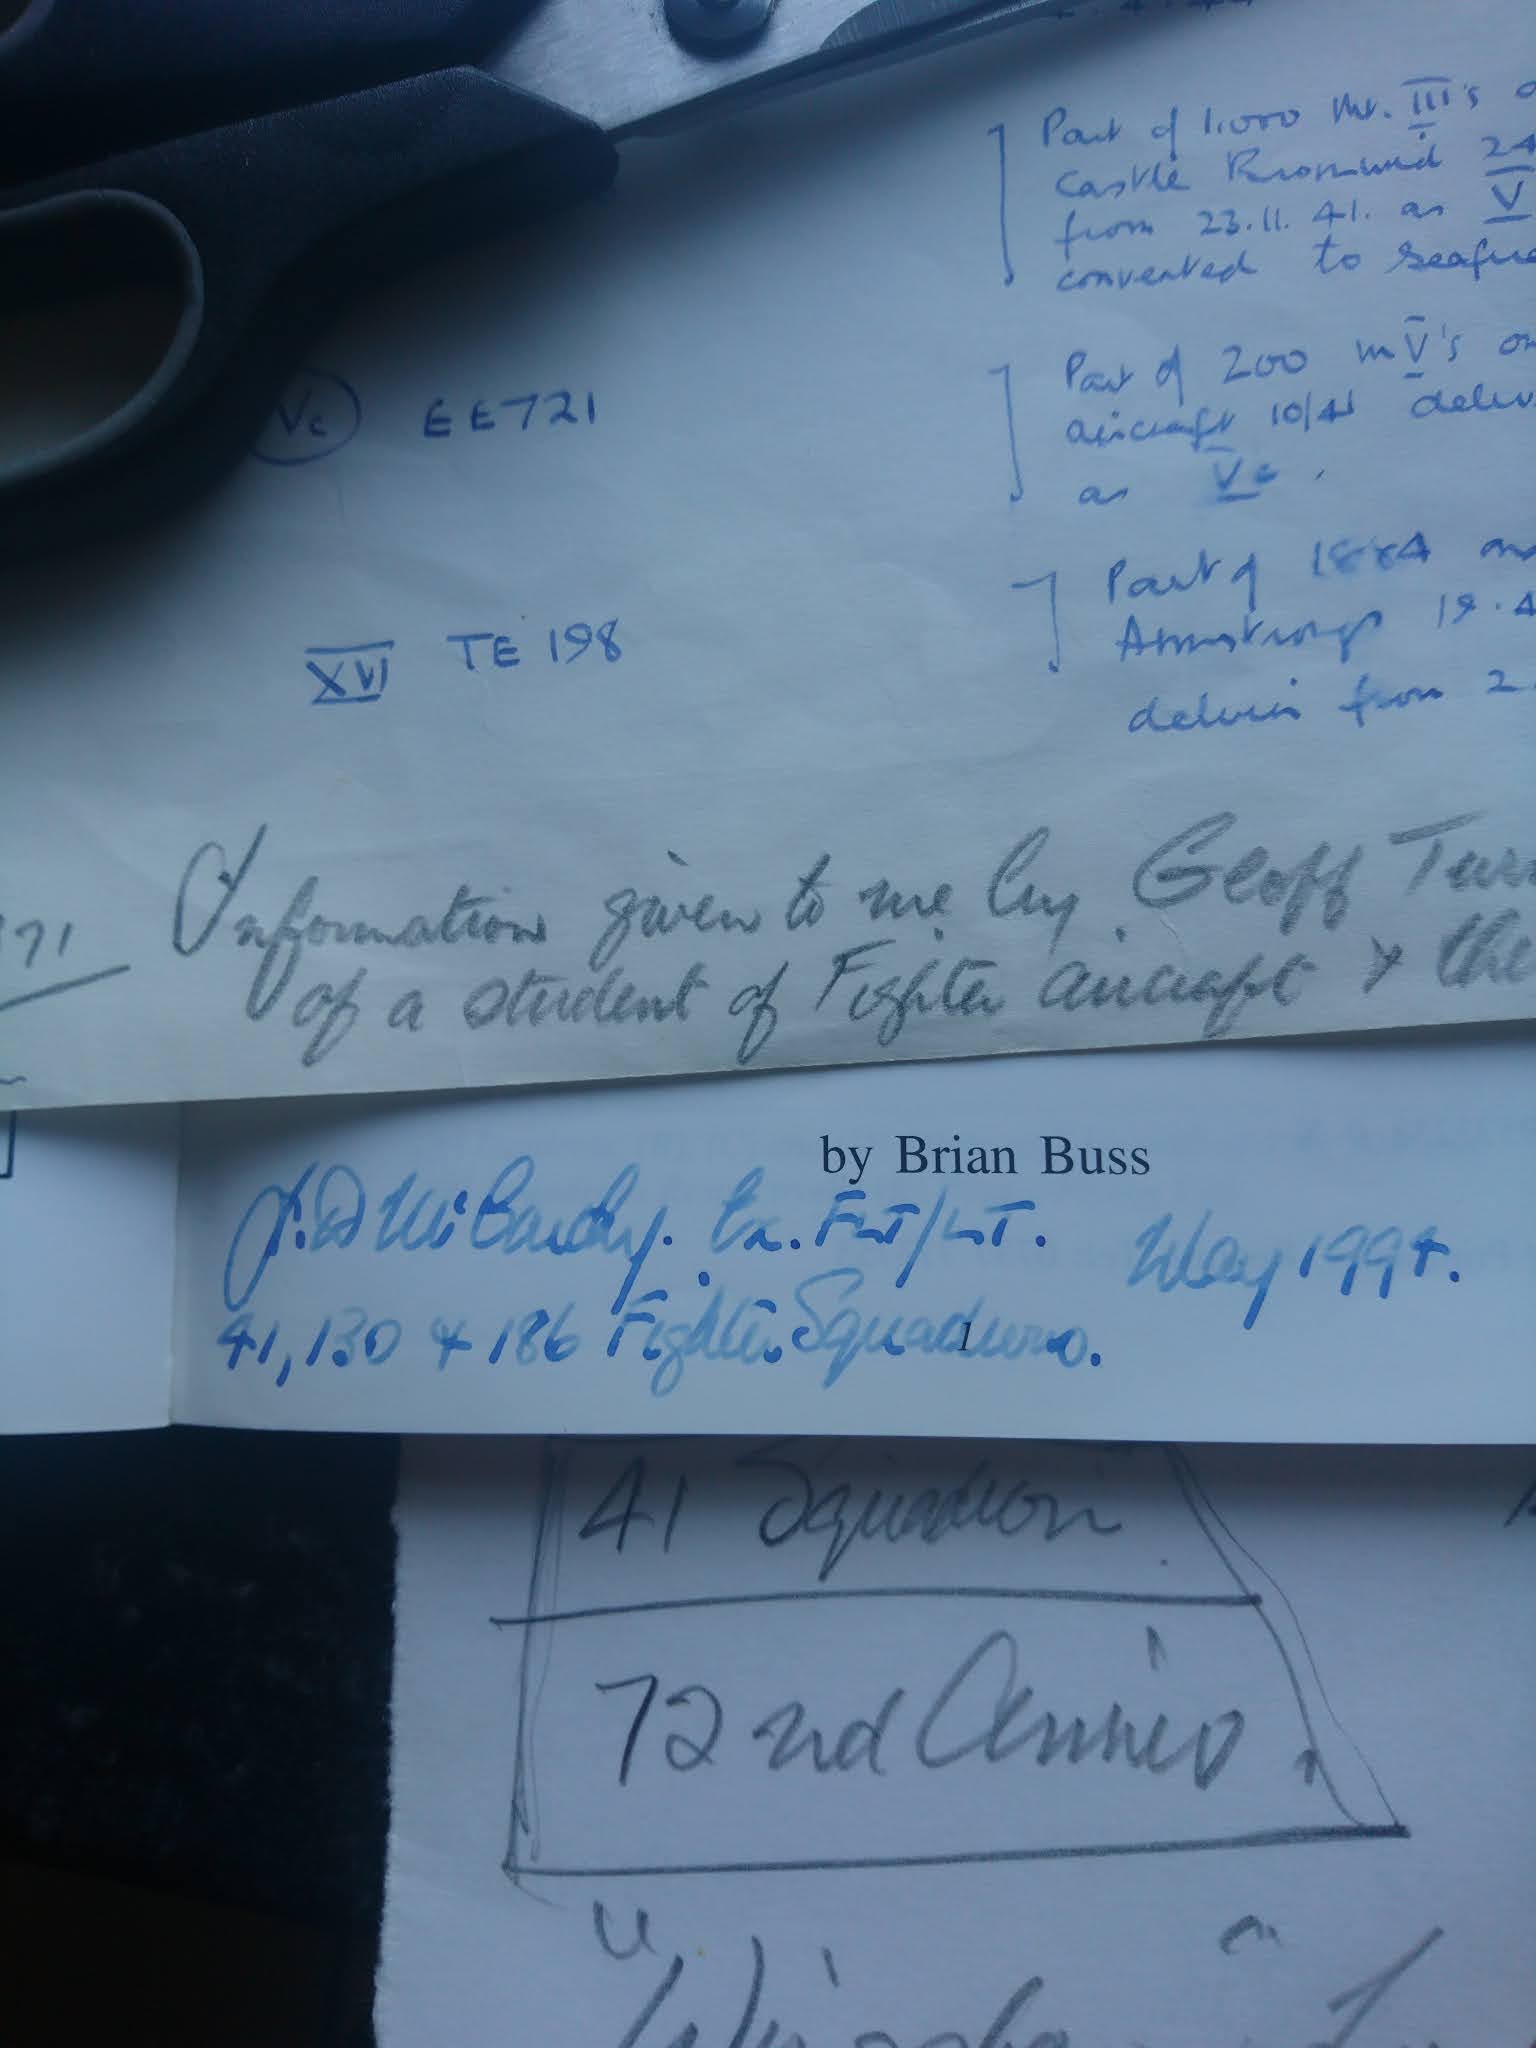 Part of 1,000 Mk. III's
Castle Bromwich 24
from 23.11.41. as V
converted to Seafire
Vc EE721
Part of 200 m V's
aircraft 10/41
as Vc.
XVI TE 198
Part of 1884
Armstrongs 19.4
from 2.
71
Information given to me by Geoff
of a student of Fighter aircraft & the
by Brian Buss
Ex. FLT/LT. May 1994.
41, 130 & 186 Fighter Squadrons.
1
41 Squadron
72nd